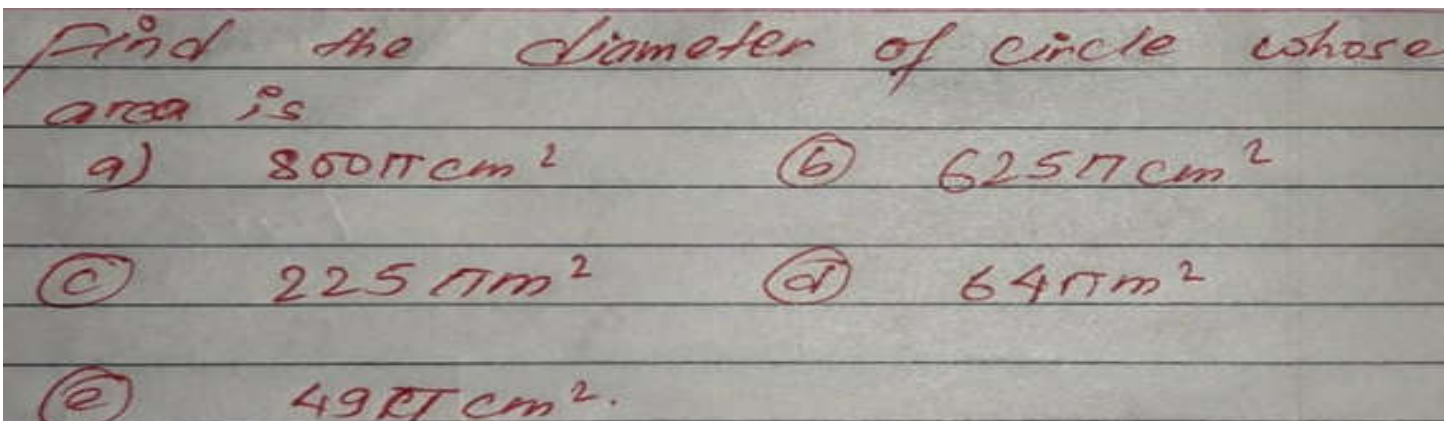 Find the diameter of circle whose
area is
a) 800π cm² ⓑ 625π cm²
ⓒ 225πm² ⓓ 64πm²
ⓔ 49π cm².